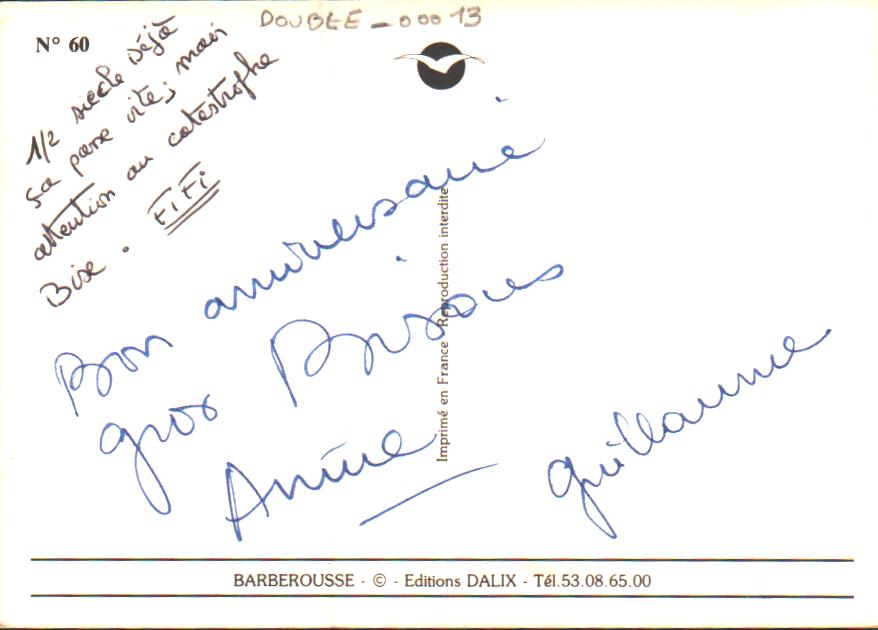 DOUBLE_00013
N° 60
1/2 siècle Déjà
ça passe vite; mais
attention au catastrophe
Bise. FiFi
Bon anniversaire
gros Bisous
Annie
Guillaume
Imprimé en France Reproduction interdite
BARBEROUSSE - © - Editions DALIX - Tél.53.08.65.00